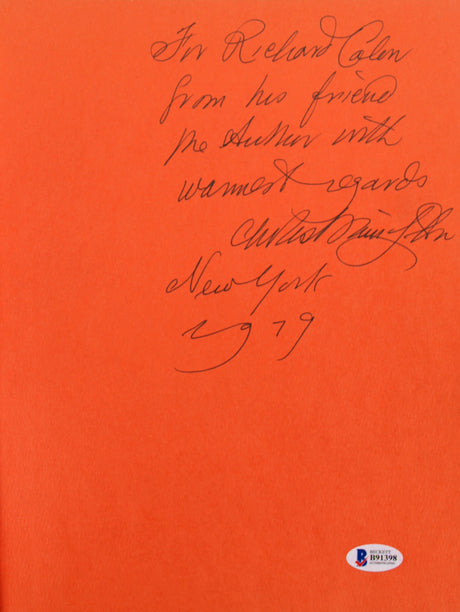 For Richard
from his friend
the Author with
warmest regards
New York
1979
BECKETT
B91398